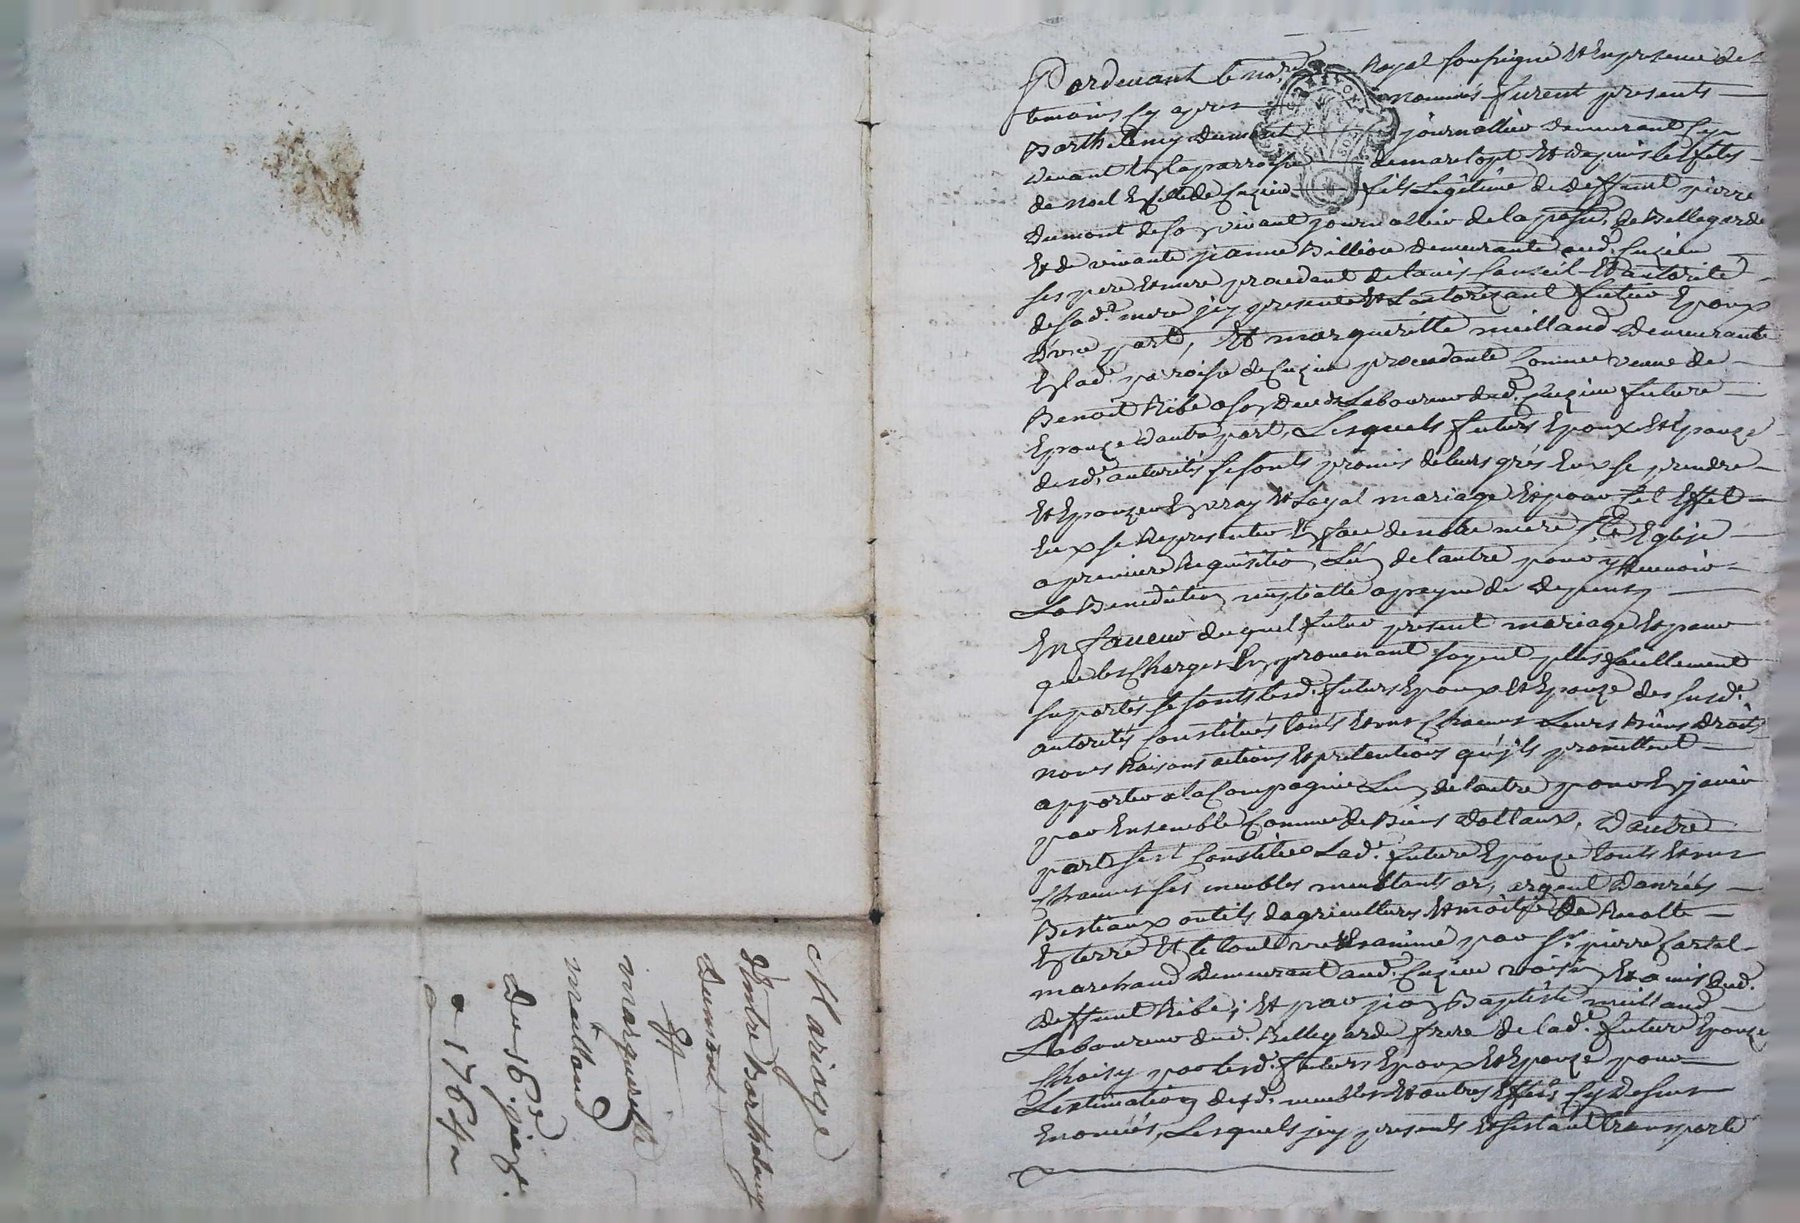 Mariage
Entre Barthelemy
Dumont
Et
marguerite
meilland
Du 16e
1764
Pardevant le no.re Royal soussigné Et En presence des
temoins cy apres nommés furent presents
Barthelemy dumont journallier demeurant cy
devant En la parroisse de marclopt Et depuis les fetes
de noel En celle de Cuzieu fils Legitime de deffunt pierre
Dumont de son vivant journallier de la par.sse de Bellegarde
Et de vivante jeanne Billiou demeurante aud. Cuzieu
ses pere Et mere procedant de lavis Conseil Et autorité
de sad.e mere jcy presente Et Lautorizant futur Epoux
D'une part, Et margueritte meilland demeurante
En lad.e parroisse de Cuzieu procedante Comme veuve de
Benoit Ribe a son deces Laboureur dud. Cuzieu future
Epouze dautre part, Lesquels futurs Epoux Et Epouze
desd. autorités se sont promis de leurs grés Eux se prendre
Et Epouzer En vray Et Loyal mariage Et pour cet Effet
Eux se Representer En face de notre mere Ste Eglise
a premiere Requisition Lun de lautre pour y Recevoir
La Benediction nuptialle a peyne de depens
En faveur duquel futur present mariage Et pour
que les Charges En provenant soyent plus facillement
suportés se sont lesd. futurs Epoux Et Epouze des susd.
autorités Constitués touts Et uns Chacuns Leurs Biens droits
noms Raisons actions Et pretentions qu'jls promettent
apporter a la Compagnie Lun de lautre pour En jouir
par Ensemble Comme de Biens dottaux. D'autre
part sest Constituée Lad.e future Epouze touts Et uns
Chacuns ses meubles meublants or, argent Danrées
Bestiaux outils dagriculture Et moitié de Recolte
En terre Et le tout vu Et Examiné par Sr. pierre
marchand demeurant aud. Cuzieu voisin Et amis dud.
deffunt Ribe; Et par jean Baptiste meilland
Laboureur dud. Bellegarde frere de lad.e future Epouze
Choisy par lesd. futurs Epoux Et Epouze pour
Lestimation desd. meubles Et autres Effets cy dessus
Enoncés, Lesquels jcy presents Et sestant transporté